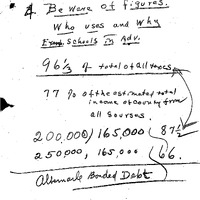 4 Beware of figures.
Who uses and Why
Schools in Adv.
96⅓ % of total of all taxes
77 % of the estimated total
income of county from
all sources.
200,000) 165,000 (87½
250,000, 165,000 (66.
Alternate Bonded Debt